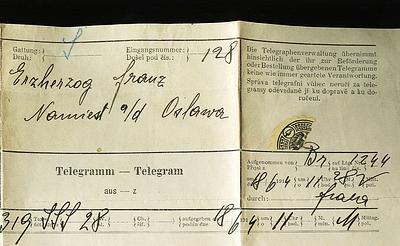 Gattung: Druh: S Eingangsnummer: Došel pod čís.: 128
Erzherzog Franz
Namiest a/d Oslawa
Die Telegraphenverwaltung übernimmt
hinsichtlich der ihr zur Beförderung
oder Bestellung übergebenen Telegramme
keine wie immer geartete Verantwortung.
Správa telegrafní vůbec neručí za tele-
gramy odevzdané jí ku dopravě a ku do-
ručení.
Telegramm — Telegram
aus — z
Aufgenommen von Br. auf Ltg. 1244
18/6 1914 um 11 28
durch: Franz
319 SSS 28 aufgegeben podán dne 18/6 1914 11 M Mittag. pol.